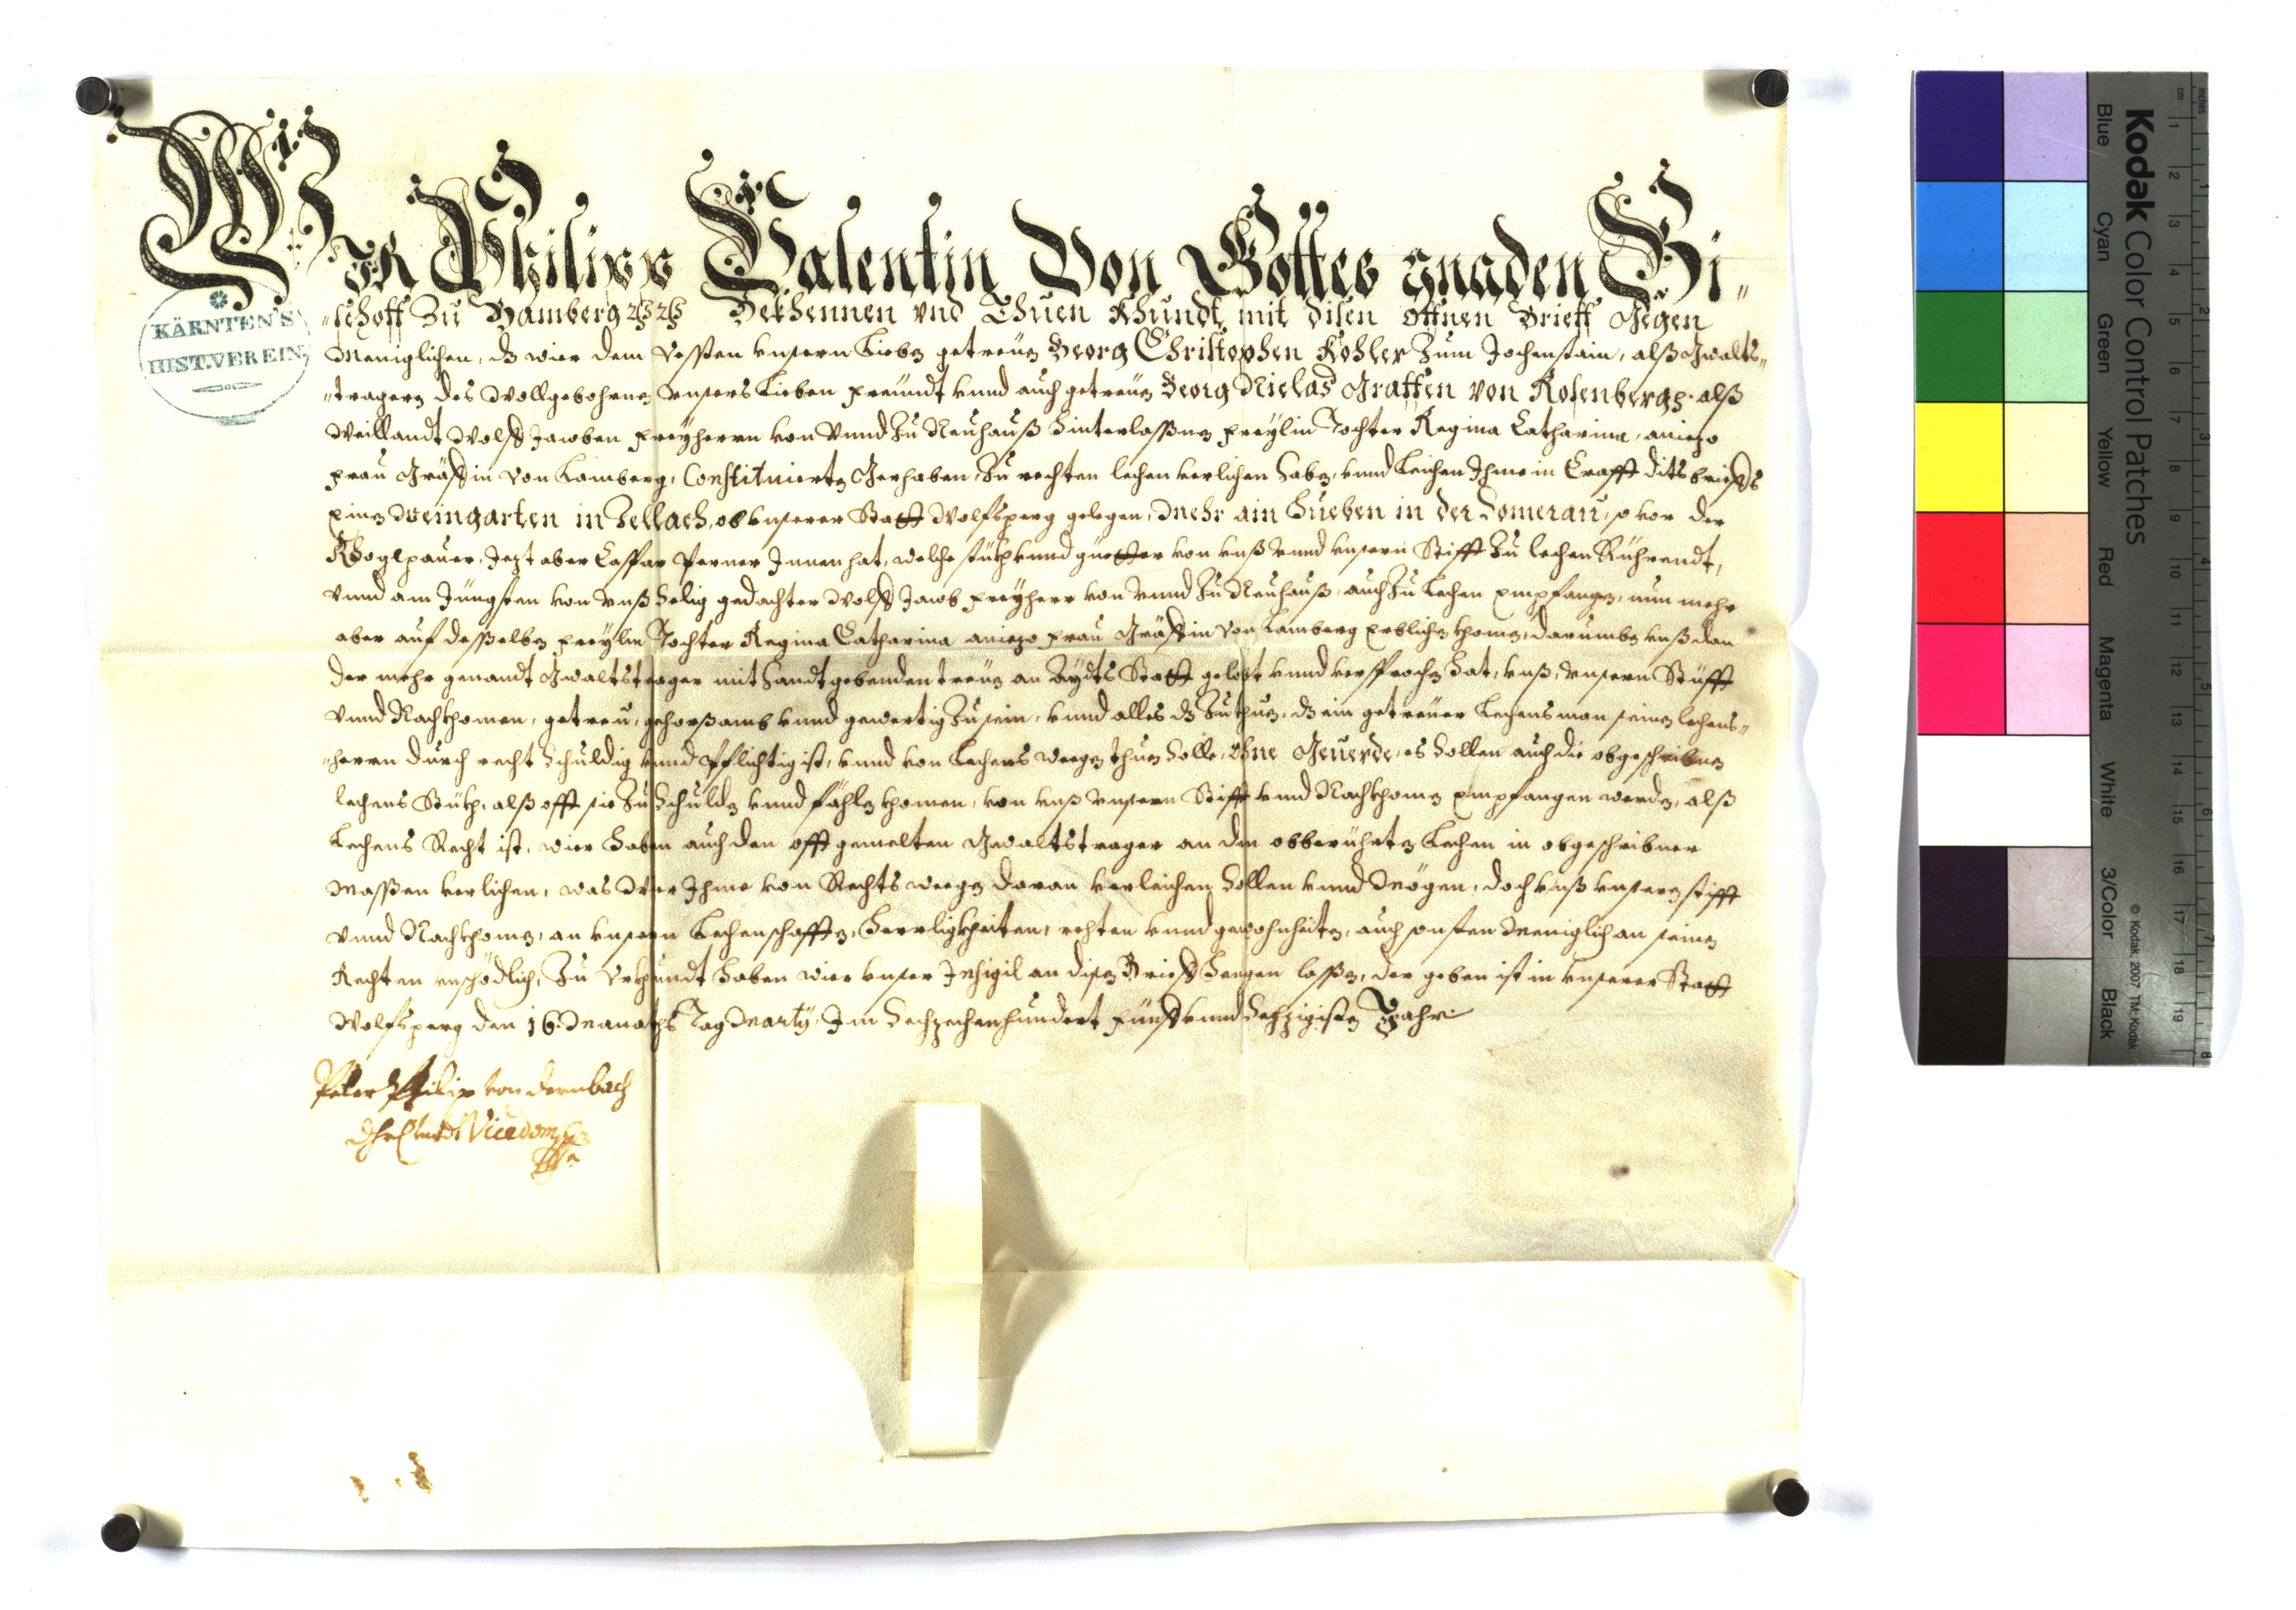 WIR Philipp Valentin Von Gottes gnaden Bi-
-schoff Zu Bamberg Bekhennen vnd Thuen Khundt mit disen offnen Brieff Gegen
Meniglichen, dz wier dem Vessten vnsern Lieben getreuen Georg Christophen Kohler Zum Jochenstain, alß Gwalts-
-tragern des Wollgebohrnen vnsers Lieben freundt vnnd auch getreuen Georg Niclas Graffen von Rosenberg alß
Weillandt Wolff Jacoben freyherrn von vnnd Zu Neuhauß hinterlaßnen freylin Tochter Regina Catharina, aniezo
frau Gräffin von Lamberg, Constituierten Gerhaben, Zu rechten lechen verlichen haben, vnnd Leichen Ihme in Crafft dits brieffs
einen Weingarten in Zellach, ob vnserer Statt Wolfsperg gelegen, Mehr ain Hueben in der Lomerau, so vor der
Khoglpauer, Jezt aber Caspar Perner Innen hat, welche stükh vnnd güetter von vnß vnnd vnsern Stifft Zu lechen Rührendt,
vnnd am Jüngsten von vnß Selig gedachter Wolff Jacob freyherr von vnnd Zu Neuhauß, auch Zu Lechen empfangen, nun mehr
aber auf desselben freylin Tochter Regina Catharina aniezo frau Gräffin von Lamberg erblichen khomen, darumben vnß dan
der mehr genandt Gwaltstrager mit handtgebenden treuen an Aydts Statt gelobt vnnd versprochen hat, vnß, vnsern Stüfft
vnnd Nachkhomen, getreu, gehorßamb vnnd gewertig Zu sein, vnnd alles dz Zuthuen, dz ein getreuer Lechensman seinen lechens-
-herrn durch recht Schuldig vnnd Pflichtig ist, vnnd von Lechens weegen thuen Solle, ohne Geuerde, es Sollen auch die obgeschriben
lechens Stükh, alß offt sie Zu Schulden vnnd fählen khomen, von vnß vnsern Stifft vnnd Nachkhomen empfangen werden, alß
Lechens Recht ist, wier haben auch den offt gemelten Gwaltstrager an den obberührten Lechen in obgeschribner
Massen verlichen, was Wier Ihme von Rechts weegen daran verleichen Sollen vnnd Mögen, doch vnß vnsern stifft
vnnd Nachkhomen, an vnsern Lechenschafften, Herrligkheiten, rechten vnnd gewohnheiten, auch sonsten Meniglich an seinen
Rechten vnschödlich, Zu Vrkhundt haben wier vnser Insigil an disen Brieff hangen lassen, der geben ist in vnserer Statt
Wolfsperg den 16. Monaths Tag Marty, Im Sechzechenhundert fünff vnnd Sechzigisten Jahr
Peter Philip von Dernbach
Vicedomb
KÄRNTEN'S
HIST. VEREIN
Kodak Color Control Patches
Blue Cyan Green Yellow Red Magenta White 3/Color Black
© Kodak, 2007 TM: Kodak
inches 1 2 3 4 5 6 7 8
cm 1 2 3 4 5 6 7 8 9 10 11 12 13 14 15 16 17 18 19